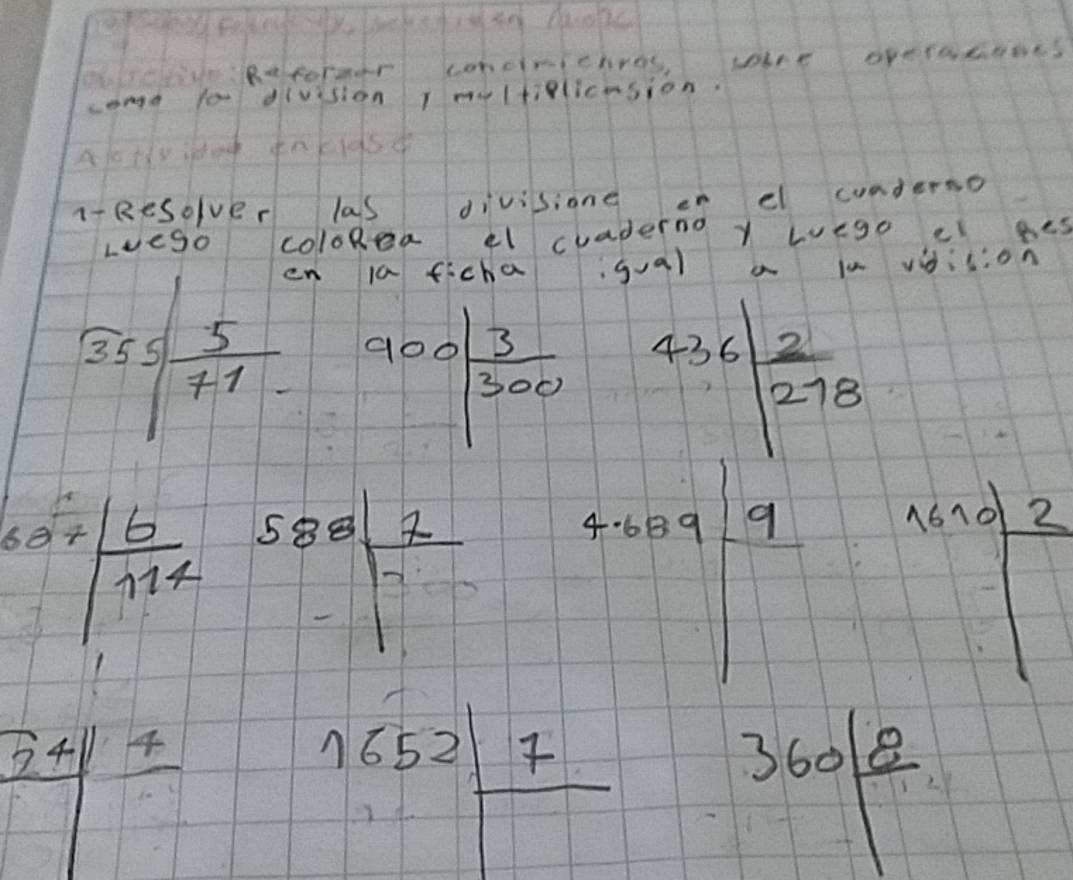 Reforzar concimienros, sobre operaciones
como la división y multiplicasión.
Actividad en clase
1-Resolver las divisione en el cuaderno
Luego coloRea el cuaderno y Luego el Res
en la ficha igual a la vidision
355 5 900 3 436 2
71 300 218
6 588 7 4.689 9 1610 2
114
4 1652 7 360 8